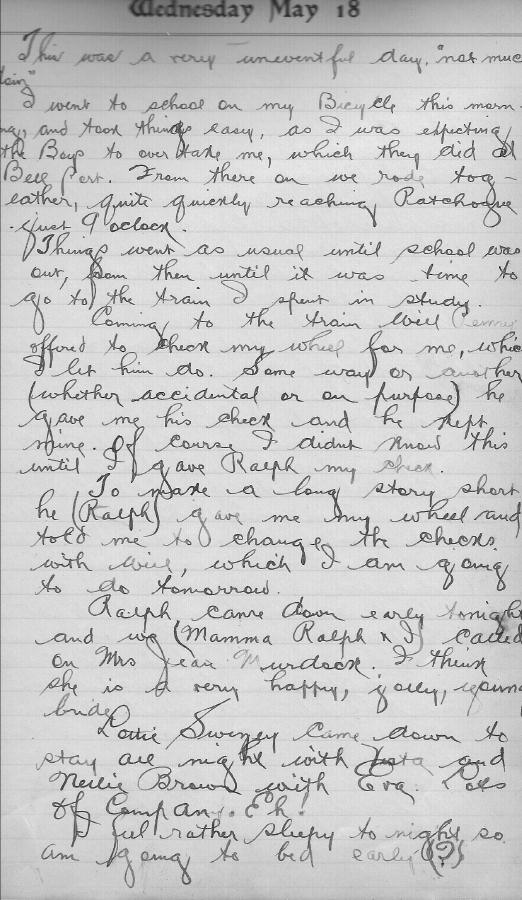 Wednesday May 18
This was a very uneventful day, "not much
doin"
I went to school on my Bicycle this morn-
ng, and took things easy, as I was expecting
the Boys to overtake me, which they did at
Bell Port. From there on we rode tog-
eather, quite quickly reaching Patchogue
just 9 oclock.
Things went as usual until school was
out, from then until it was time to
go to the train I spent in study.
Coming to the train Will
offered to check my wheel for me, whic
I let him do. Some way or another
(whether accidental or on purpose) he
gave me his check and he kept
mine. Of course I didnt know this
until I gave Ralph my check.
To make a long story short
he (Ralph) gave me my wheel and
told me to change the checks
with Will, which I am going
to do tomorrow.
Ralph came down early tonight
and we (Mamma Ralph & I) called
on Mrs Jean Murdock. I think
she is a very happy, jolly, young
bride.
Lottie Swezey came down to
stay all night with and
Nellie Brown with Eva. Lots
of Company. Eh!
I feel rather sleepy to night, so
am going to bed early (?)